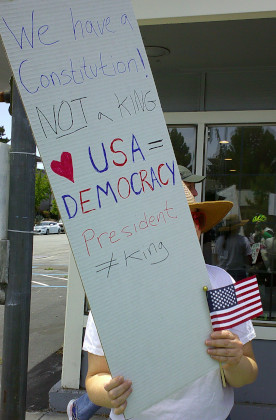 We have a
Constitution!
NOT a KING
♥ USA =
DEMOCRACY
President
≠ King